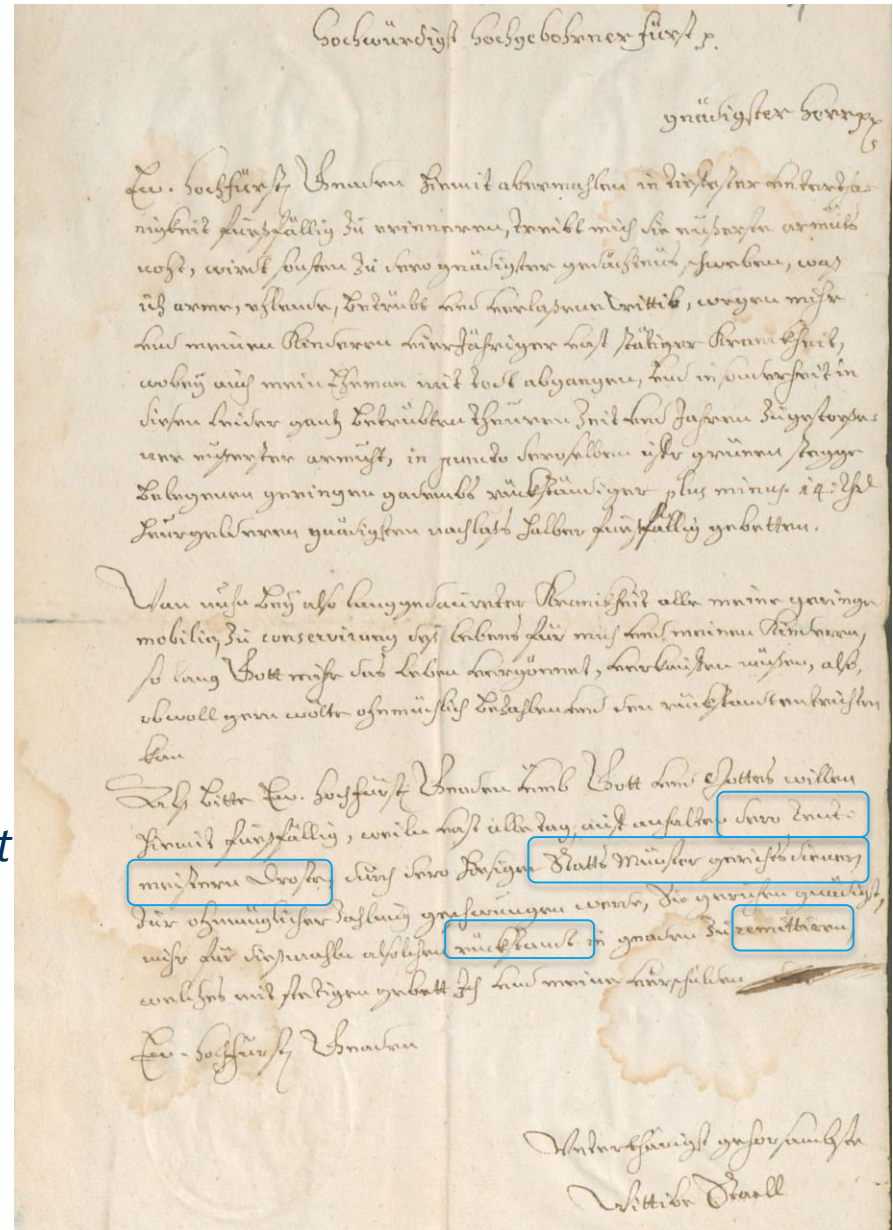 Hochwürdigst hochgebohrner Fürst p.
gnädigster Herr pp
Ew. Hochfürstl Gnaden hiemit abermahlen in tiefester Untertha=
nigkeit fuesfällig zu erinneren, treibt mich die eußerste armuts
noht, wirdt sonsten zu dero gnädigster gedächtnüs schweben, waß
ich arme, ehlende, betrübte und verlaßene Wittib, wegen mihr
und meinen Kinderen vierJähriger vast stätiger Kranckheit,
wobey auch mein Eheman mit todt abgangen, und in sonderheit in
diesen leider gantz betrübten theuren Zeit und Jahren zugestoße=
ner eußerster armuht, in puncto deroselben grünen stegge
belegenen geringen gadembs rückständiger plus minus 14 thl
heurgelderen gnädigsten nachlaß halber fuesfällig gebetten.
Wan nuhn bey also langgedaurter Kranckheit alle meine geringe
mobilia, zu conservirung deß lebens für mich und meinen Kinderen,
so lang Gott mihr das leben vergönnet, verkauffen müßen, also,
obwoll gern wolte ohnmüchlich bezahlen und den rückstandt entrichten
kan
Alß bitte Ew. Hochfürstl Gnaden umb Gott und Gottes willen
hiemit fuesfällig, weiln vast alle tag, auff anhalten dero Rent=
meistern Droste, durch dero hiesiger Statts Münster gerichtsdienern
zur ohnmüglicher Zahlung gezwungen werde, Sie geruhen gnädigst,
mihr für dießmahln alsolchen rückstandt in gnaden zu remittiren,
welches mit stetigen gebett Ich und meine verschulden
Ew. Hochfürstl Gnaden
Unterthänigst gehorsambste
Wittibe Staell
t